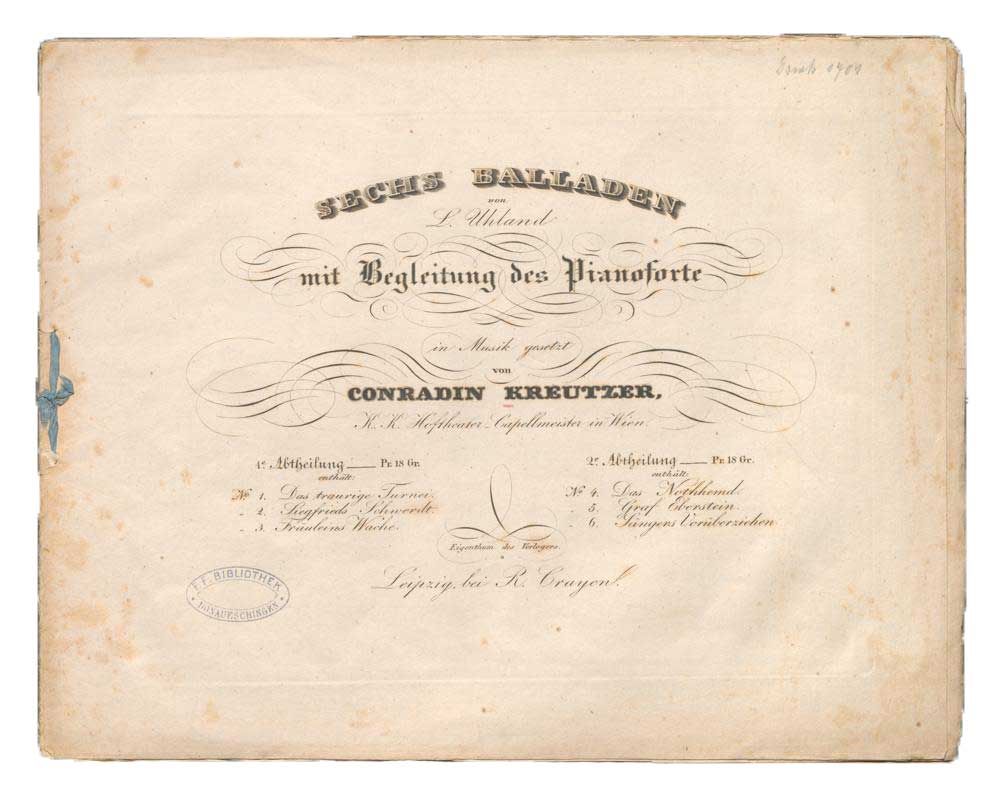 SECHS BALLADEN
von
L. Uhland
mit Begleitung des Pianoforte
in Musik gesetzt
von
CONRADIN KREUTZER,
K. K. Hoftheater-Capellmeister in Wien.
1e. Abtheilung — Pr. 18 Gr.
enthält:
No. 1. Das traurige Turnei.
„ 2. Siegfrieds Schwerdt.
„ 3. Fräuleins Wache.
2e. Abtheilung — Pr. 18 Gr.
enthält:
No. 4. Das Nothhemd.
„ 5. Graf Eberstein.
„ 6. Sängers Vorüberziehen
Eigenthum des Verlegers.
Leipzig, bei R. Crayen.
F. F. BIBLIOTHEK
DONAUESCHINGEN